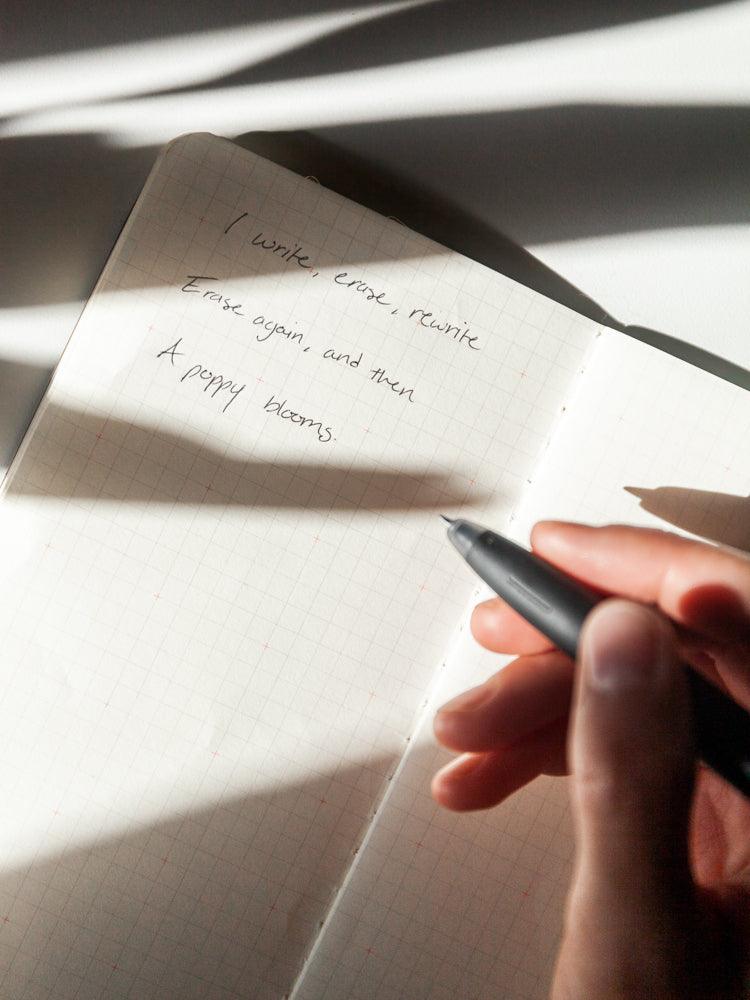 I write, erase, rewrite
Erase again, and then
A poppy blooms.